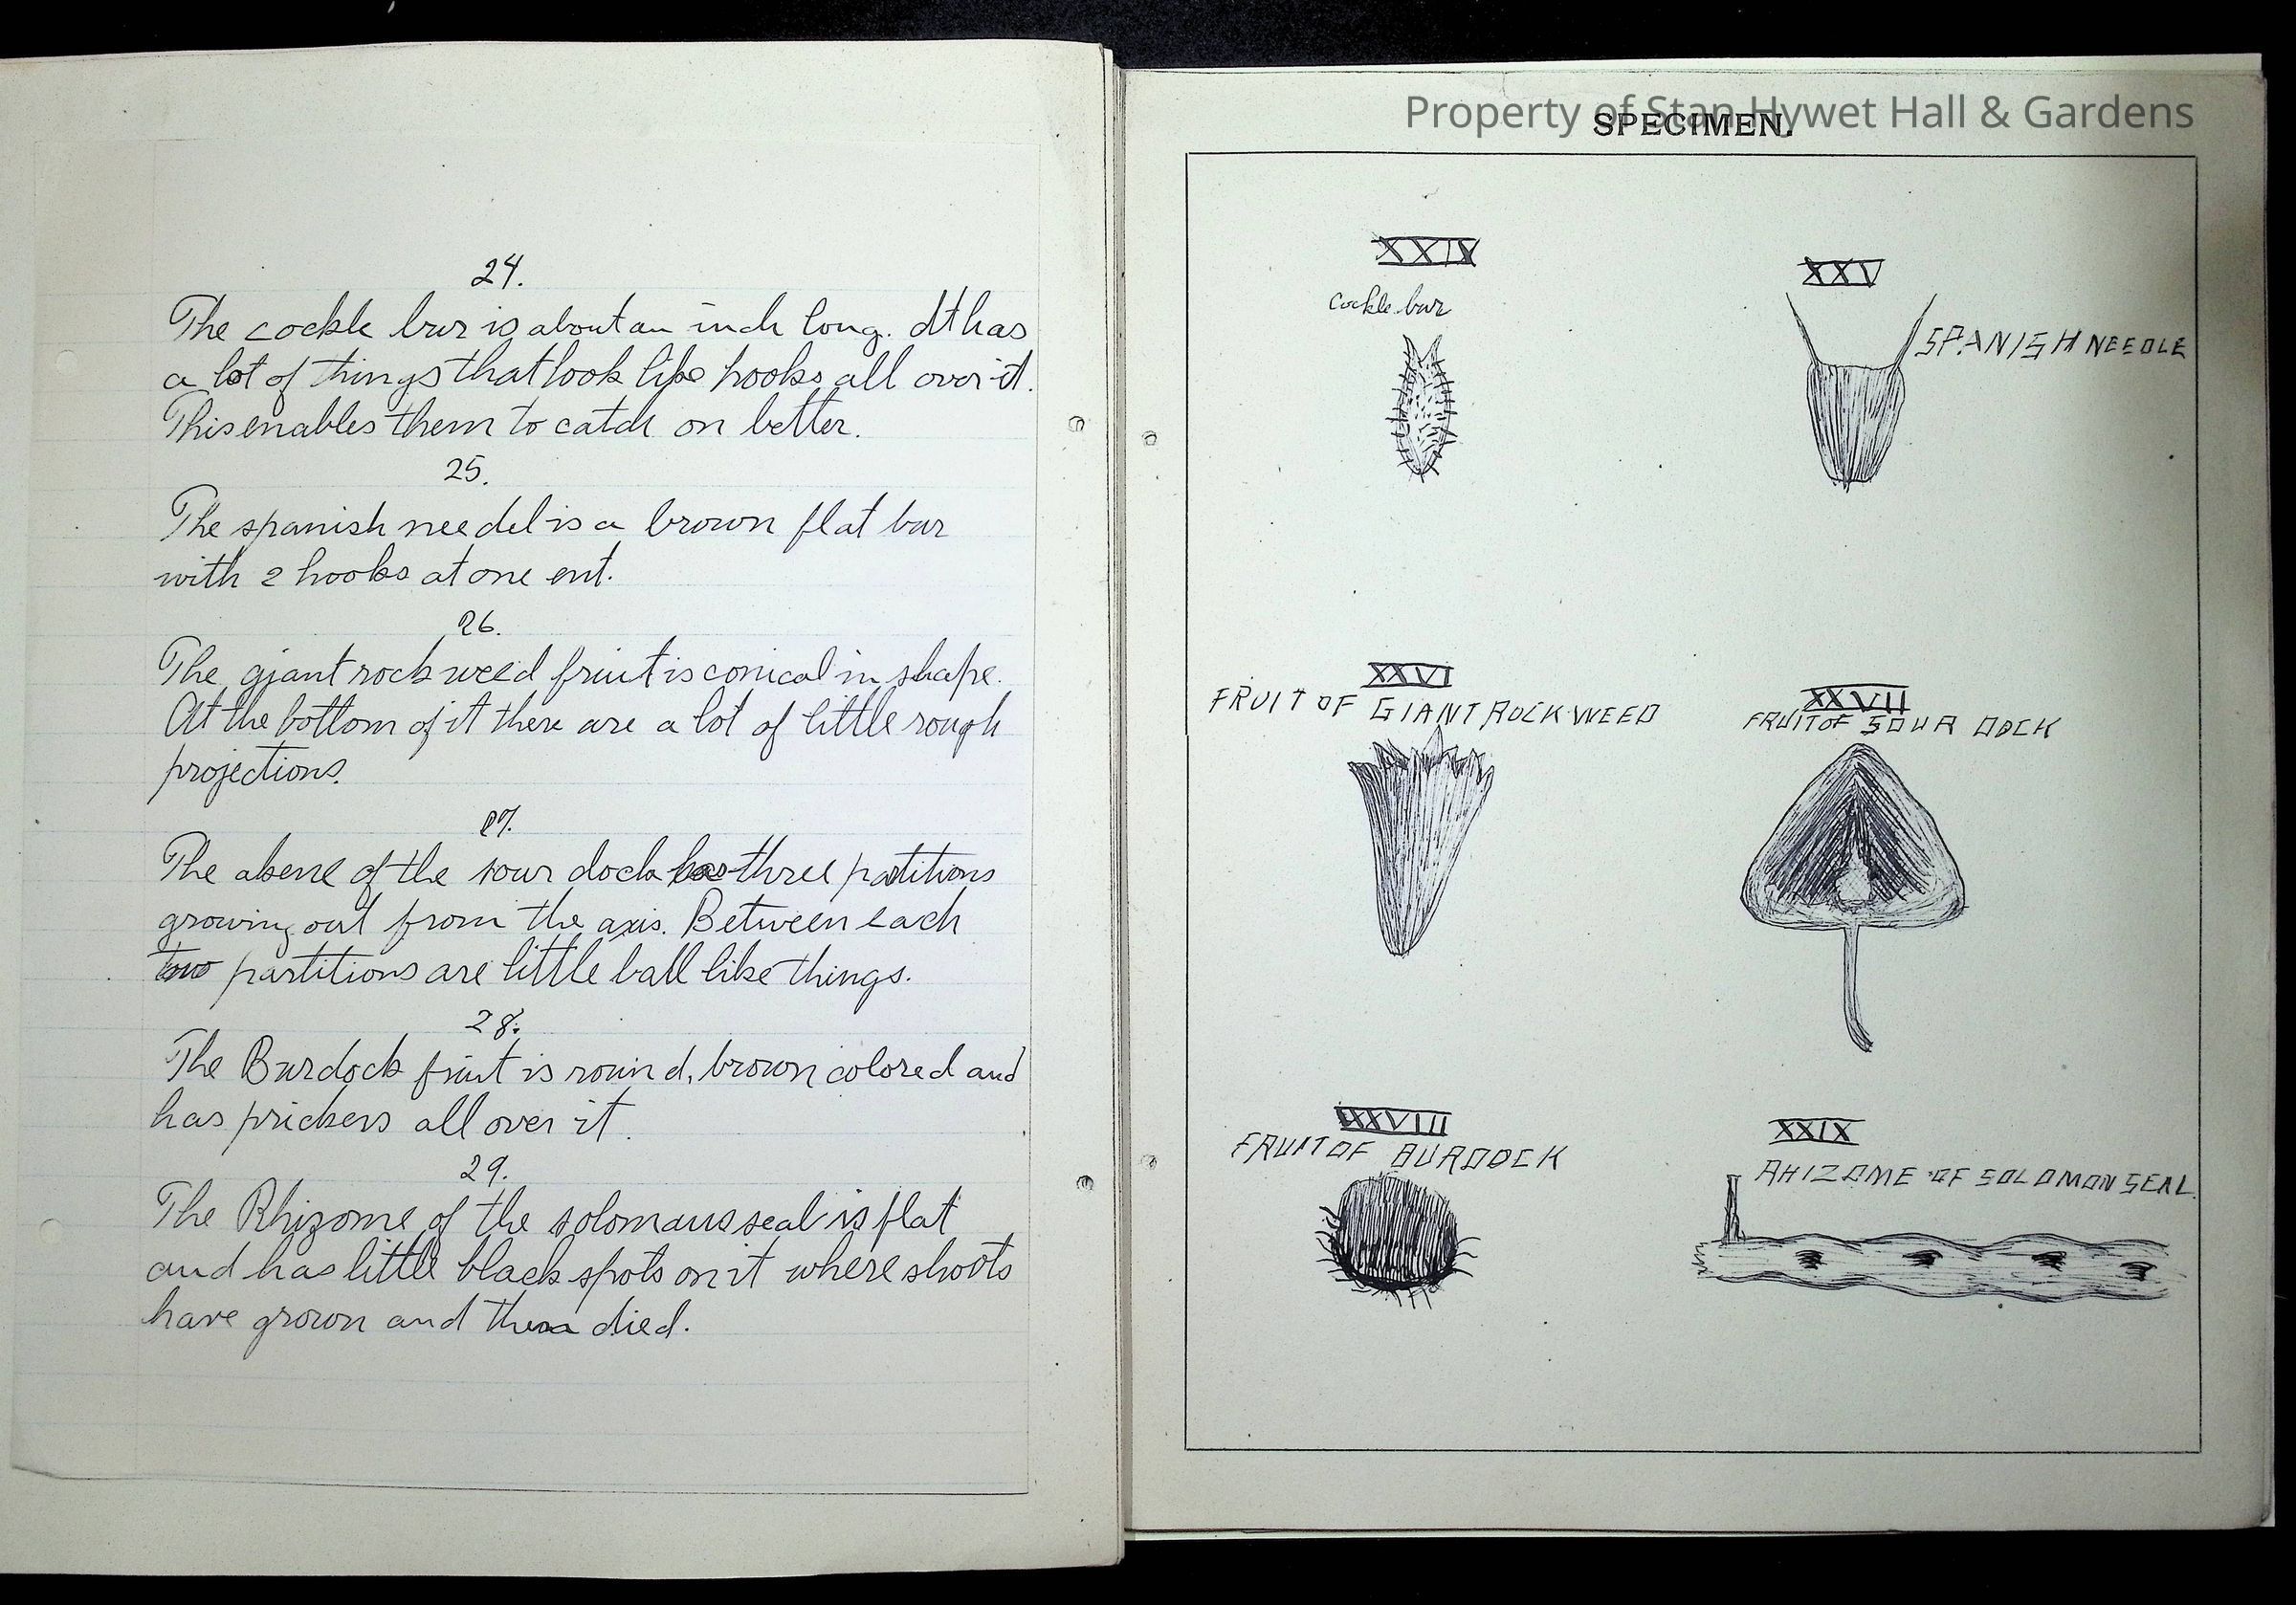 24.
The cockle bur is about an inch long. It has
a lot of things that look like hooks all over it.
This enables them to catch on better.
25.
The spanish needel is a brown flat bur
with 2 hooks at one ent.
26.
The giant rock weed fruit is conical in shape.
At the bottom of it there are a lot of little rough
projections.
27.
The akene of the sour dock has three partitions
growing out from the axis. Between each
two partitions are little ball like things.
28.
The Burdock fruit is round, brown colored and
has prickers all over it.
29.
The Rhizome of the solomans seal is flat
and has little black spots on it where shoots
have grown and then died.
Property of Stan Hywet Hall & Gardens
SPECIMEN.
XXIV
Cockle bur
XXV
SPANISH NEEDLE
XXVI
FRUIT OF GIANT ROCK WEED
XXVII
FRUIT OF SOUR DOCK
XXVIII
FRUIT OF BURDOCK
XXIX
RHIZOME OF SOLOMON SEAL.